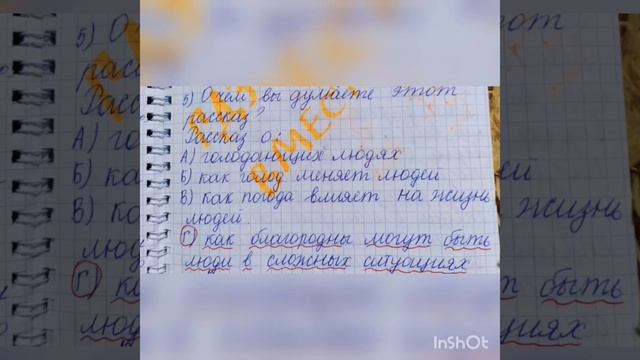 5) О чём вы думаете этот
рассказ?
Рассказ о:
А) голодающих людях
Б) как голод меняет людей
В) как погода влияет на жизнь
людей
Г) как благородны могут быть
люди в сложных ситуациях
InShOt